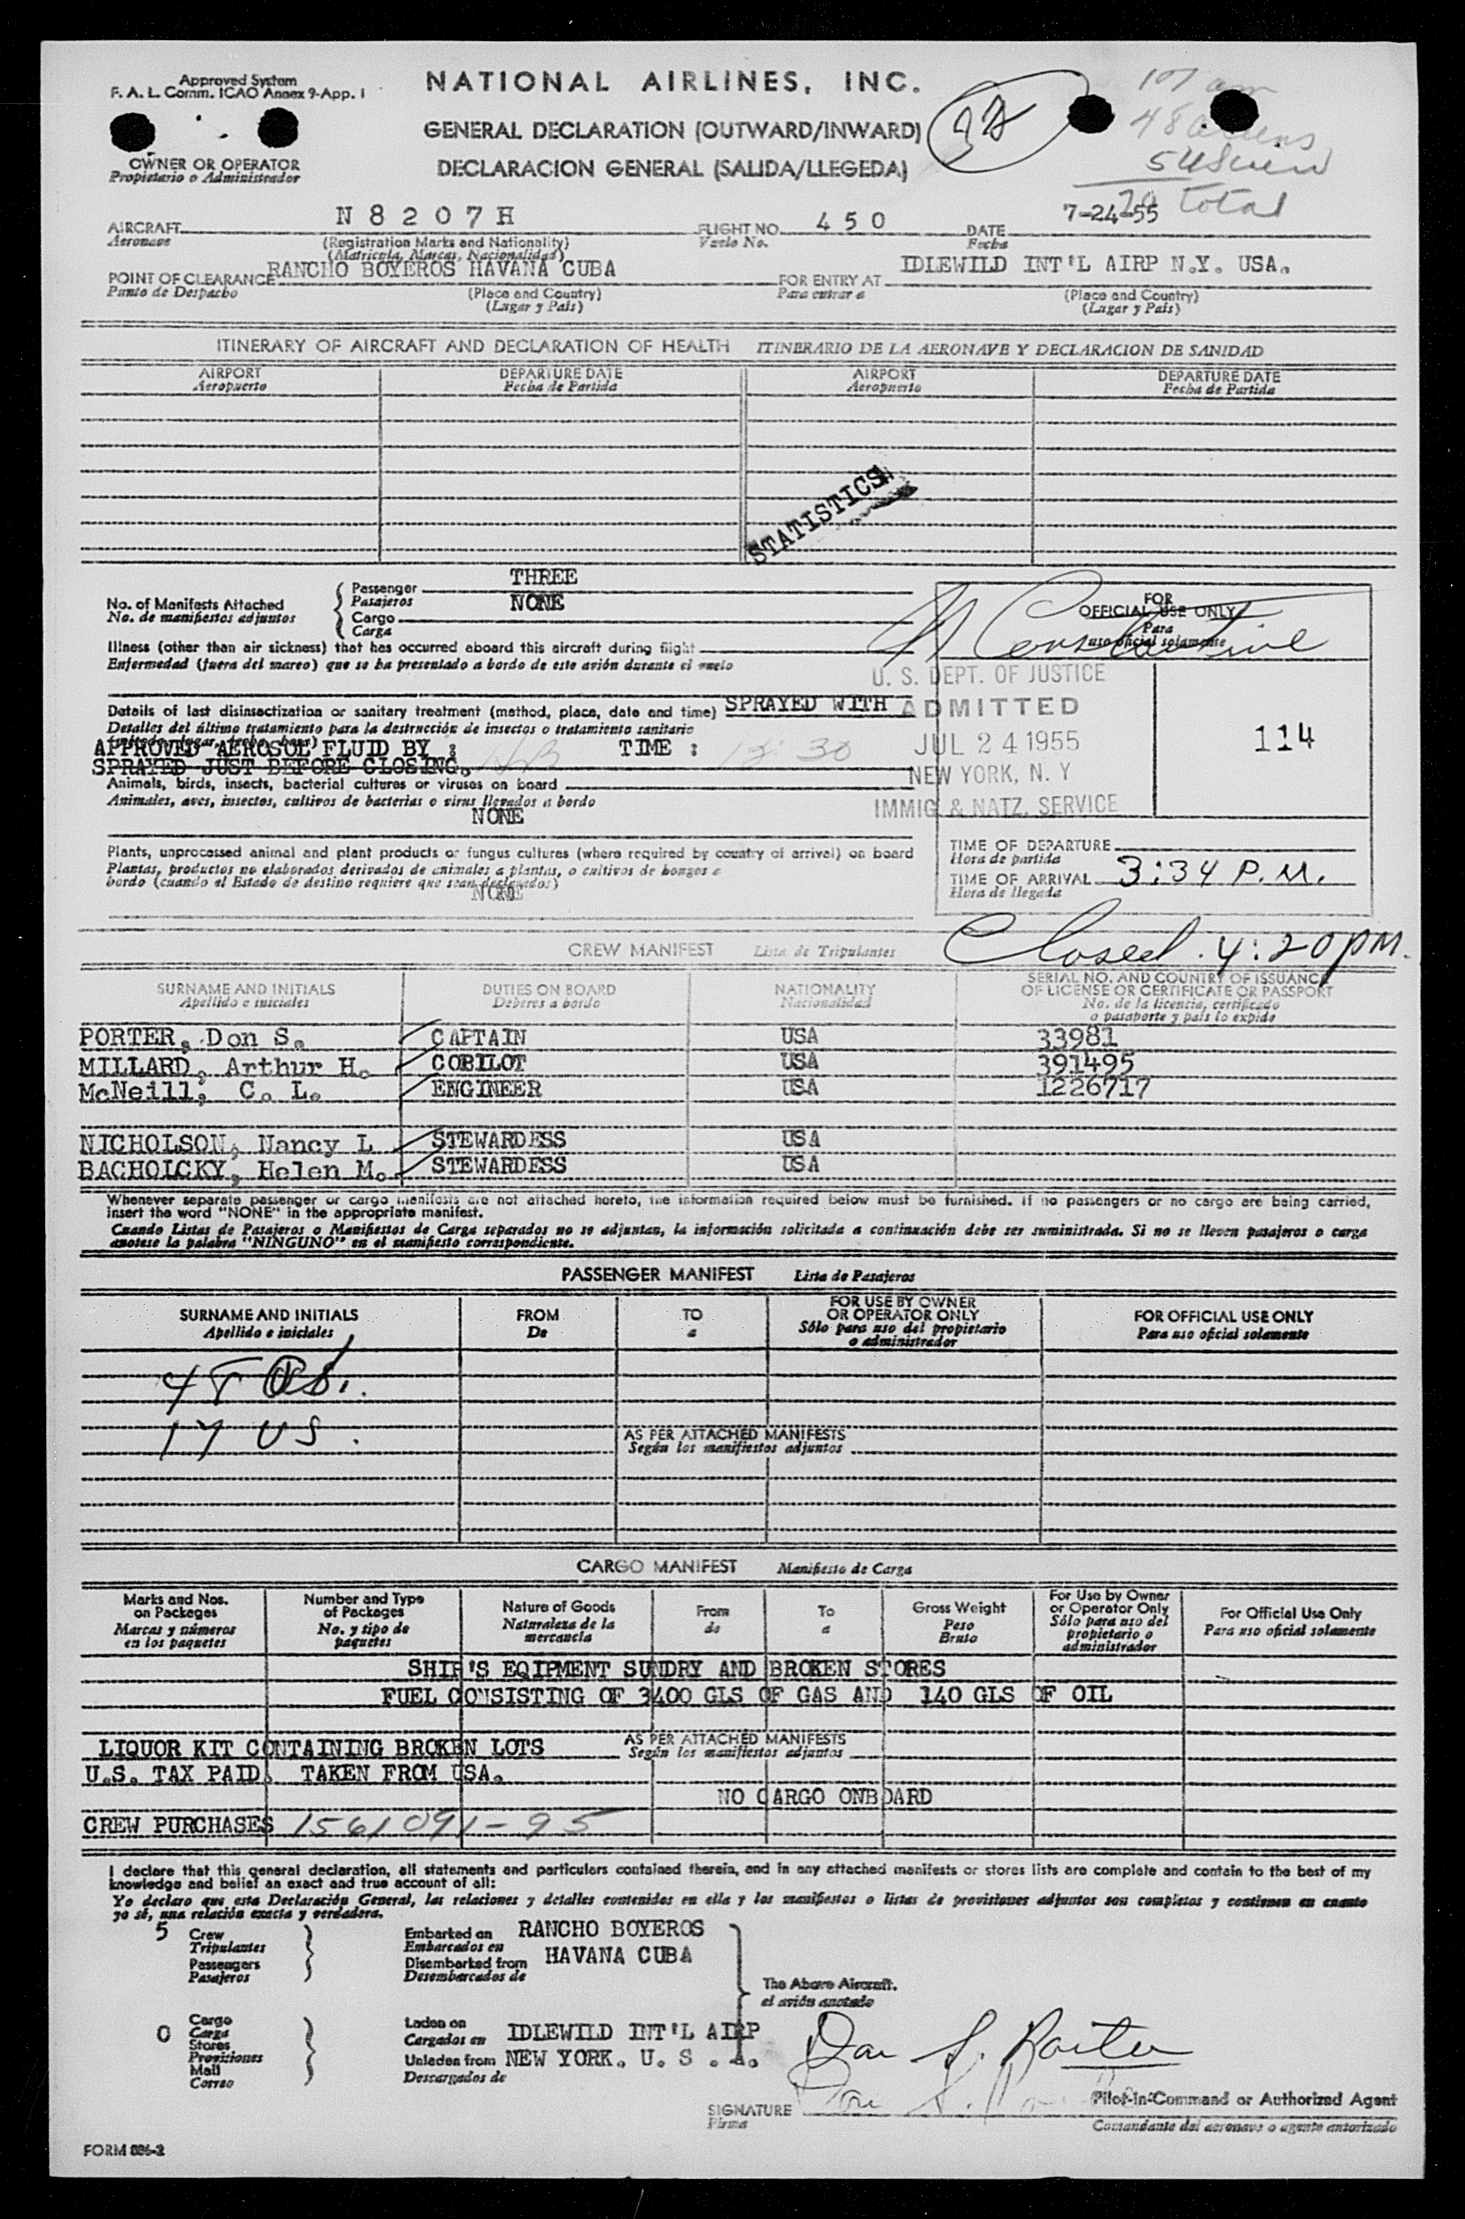 Approved System
F. A. L. Comm. ICAO Annex 9-App. 1
NATIONAL AIRLINES, INC.
GENERAL DECLARATION (OUTWARD/INWARD)
DECLARACION GENERAL (SALIDA/LLEGEDA)
OWNER OR OPERATOR
Propietario o Administrador
total
AIRCRAFT N8207H FLIGHT NO. 450 DATE 7-24-55
Aeronave (Registration Marks and Nationality) Vuelo No. Fecha
(Matricula, Marcas, Nacionalidad)
POINT OF CLEARANCE RANCHO BOYEROS HAVANA CUBA FOR ENTRY AT IDLEWILD INT'L AIRP N.Y. USA.
Punto de Despacho (Place and Country) Para entrar a (Place and Country)
(Lugar y Pais) (Lugar y Pais)
ITINERARY OF AIRCRAFT AND DECLARATION OF HEALTH ITINERARIO DE LA AERONAVE Y DECLARACION DE SANIDAD
AIRPORT DEPARTURE DATE AIRPORT DEPARTURE DATE
Aeropuerto Fecha de Partida Aeropuerto Fecha de Partida
STATISTICS
No. of Manifests Attached Passenger THREE
No. de manifiestos adjuntos Pasajeros NONE
Cargo
Carga
Illness (other than air sickness) that has occurred aboard this aircraft during flight
Enfermedad (fuera del mareo) que se ha presentado a bordo de este avión durante el vuelo
Details of last disinsectization or sanitary treatment (method, place, date and time) SPRAYED WITH
Detalles del último tratamiento para la destrucción de insectos o tratamiento sanitario
APPROVED AEROSOL FLUID BY : TIME : 12:30
SPRAYED JUST BEFORE CLOSING.
Animals, birds, insects, bacterial cultures or viruses on board
Animales, aves, insectos, cultivos de bacterias o virus llevados a bordo
NONE
Plants, unprocessed animal and plant products or fungus cultures (where required by country of arrival) on board
Plantas, productos no elaborados derivados de animales a plantas, o cultivos de hongos a
bordo (cuando el Estado de destino requiere que sean declarados)
NONE
FOR
OFFICIAL USE ONLY
Para
uso oficial solamente
U. S. DEPT. OF JUSTICE
ADMITTED
JUL 24 1955
NEW YORK, N. Y
IMMIG & NATZ. SERVICE
114
TIME OF DEPARTURE
Hora de partida
TIME OF ARRIVAL 3:34 P.M.
Hora de llegada
Closed. 4:20 pm.
CREW MANIFEST Lista de Tripulantes
SURNAME AND INITIALS DUTIES ON BOARD NATIONALITY SERIAL NO. AND COUNTRY OF ISSUANCE
Apellido e iniciales Deberes a bordo Nacionalidad OF LICENSE OR CERTIFICATE OR PASSPORT
No. de la licencia, certificado
o pasaporte y pais lo expide
PORTER, Don S. CAPTAIN USA 33981
MILLARD, Arthur H. COBILOT USA 391495
McNeill, C. L. ENGINEER USA 1226717
NICHOLSON, Nancy L STEWARDESS USA
BACHOICKY, Helen M. STEWARDESS USA
Whenever separate passenger or cargo manifests are not attached hereto, the information required below must be furnished. If no passengers or no cargo are being carried,
insert the word "NONE" in the appropriate manifest.
Cuando Listas de Pasajeros o Manifiestos de Carga separados no se adjuntan, la información solicitada a continuación debe ser suministrada. Si no se lleven pasajeros o carga
anotese la palabra "NINGUNO" en el manifiesto correspondiente.
PASSENGER MANIFEST Lista de Pasajeros
SURNAME AND INITIALS FROM TO FOR USE BY OWNER FOR OFFICIAL USE ONLY
Apellido e iniciales De a OR OPERATOR ONLY Para uso oficial solamente
Sólo para uso del propietario
o administrador
17 US.
AS PER ATTACHED MANIFESTS
Según los manifiestos adjuntos
CARGO MANIFEST Manifiesto de Carga
Marks and Nos. on Packages Number and Type of Packages Nature of Goods From To Gross Weight For Use by Owner or Operator Only For Official Use Only
Marcas y números en los paquetes No. y tipo de paquetes Naturaleza de la mercancia de a Peso Bruto Sólo para uso del propietario o administrador Para uso oficial solamente
SHIP'S EQIPMENT SUNDRY AND BROKEN STORES
FUEL CONSISTING OF 3400 GLS OF GAS AND 140 GLS OF OIL
LIQUOR KIT CONTAINING BROKEN LOTS AS PER ATTACHED MANIFESTS
Según los manifiestos adjuntos
U.S. TAX PAID. TAKEN FROM USA.
NO CARGO ONBOARD
CREW PURCHASES 1561091-95
I declare that this general declaration, all statements and particulars contained therein, and in any attached manifests or stores lists are complete and contain to the best of my
knowledge and belief an exact and true account of all:
Yo declaro que esta Declaración General, las relaciones y detalles contenidos en ella y los manifiestos o listas de provisiones adjuntos son completos y contienen en cuanto
yo sé, una relación exacta y verdadera.
5 Crew Embarked on RANCHO BOYEROS
Tripulantes Embarcados en
Passengers Disembarked from HAVANA CUBA
Pasajeros Desembarcados de
The Above Aircraft.
el avión anotado
0 Cargo Laden on IDLEWILD INT'L AIRP
Carga Cargados en
Stores Unladen from NEW YORK. U. S . A.
Provisiones Descargados de
Mail
Correo
Don S. Porter
SIGNATURE Don S. Pilot-in-Command or Authorized Agent
Firma Comandante del aeronave o agente autorizado
FORM 886-2